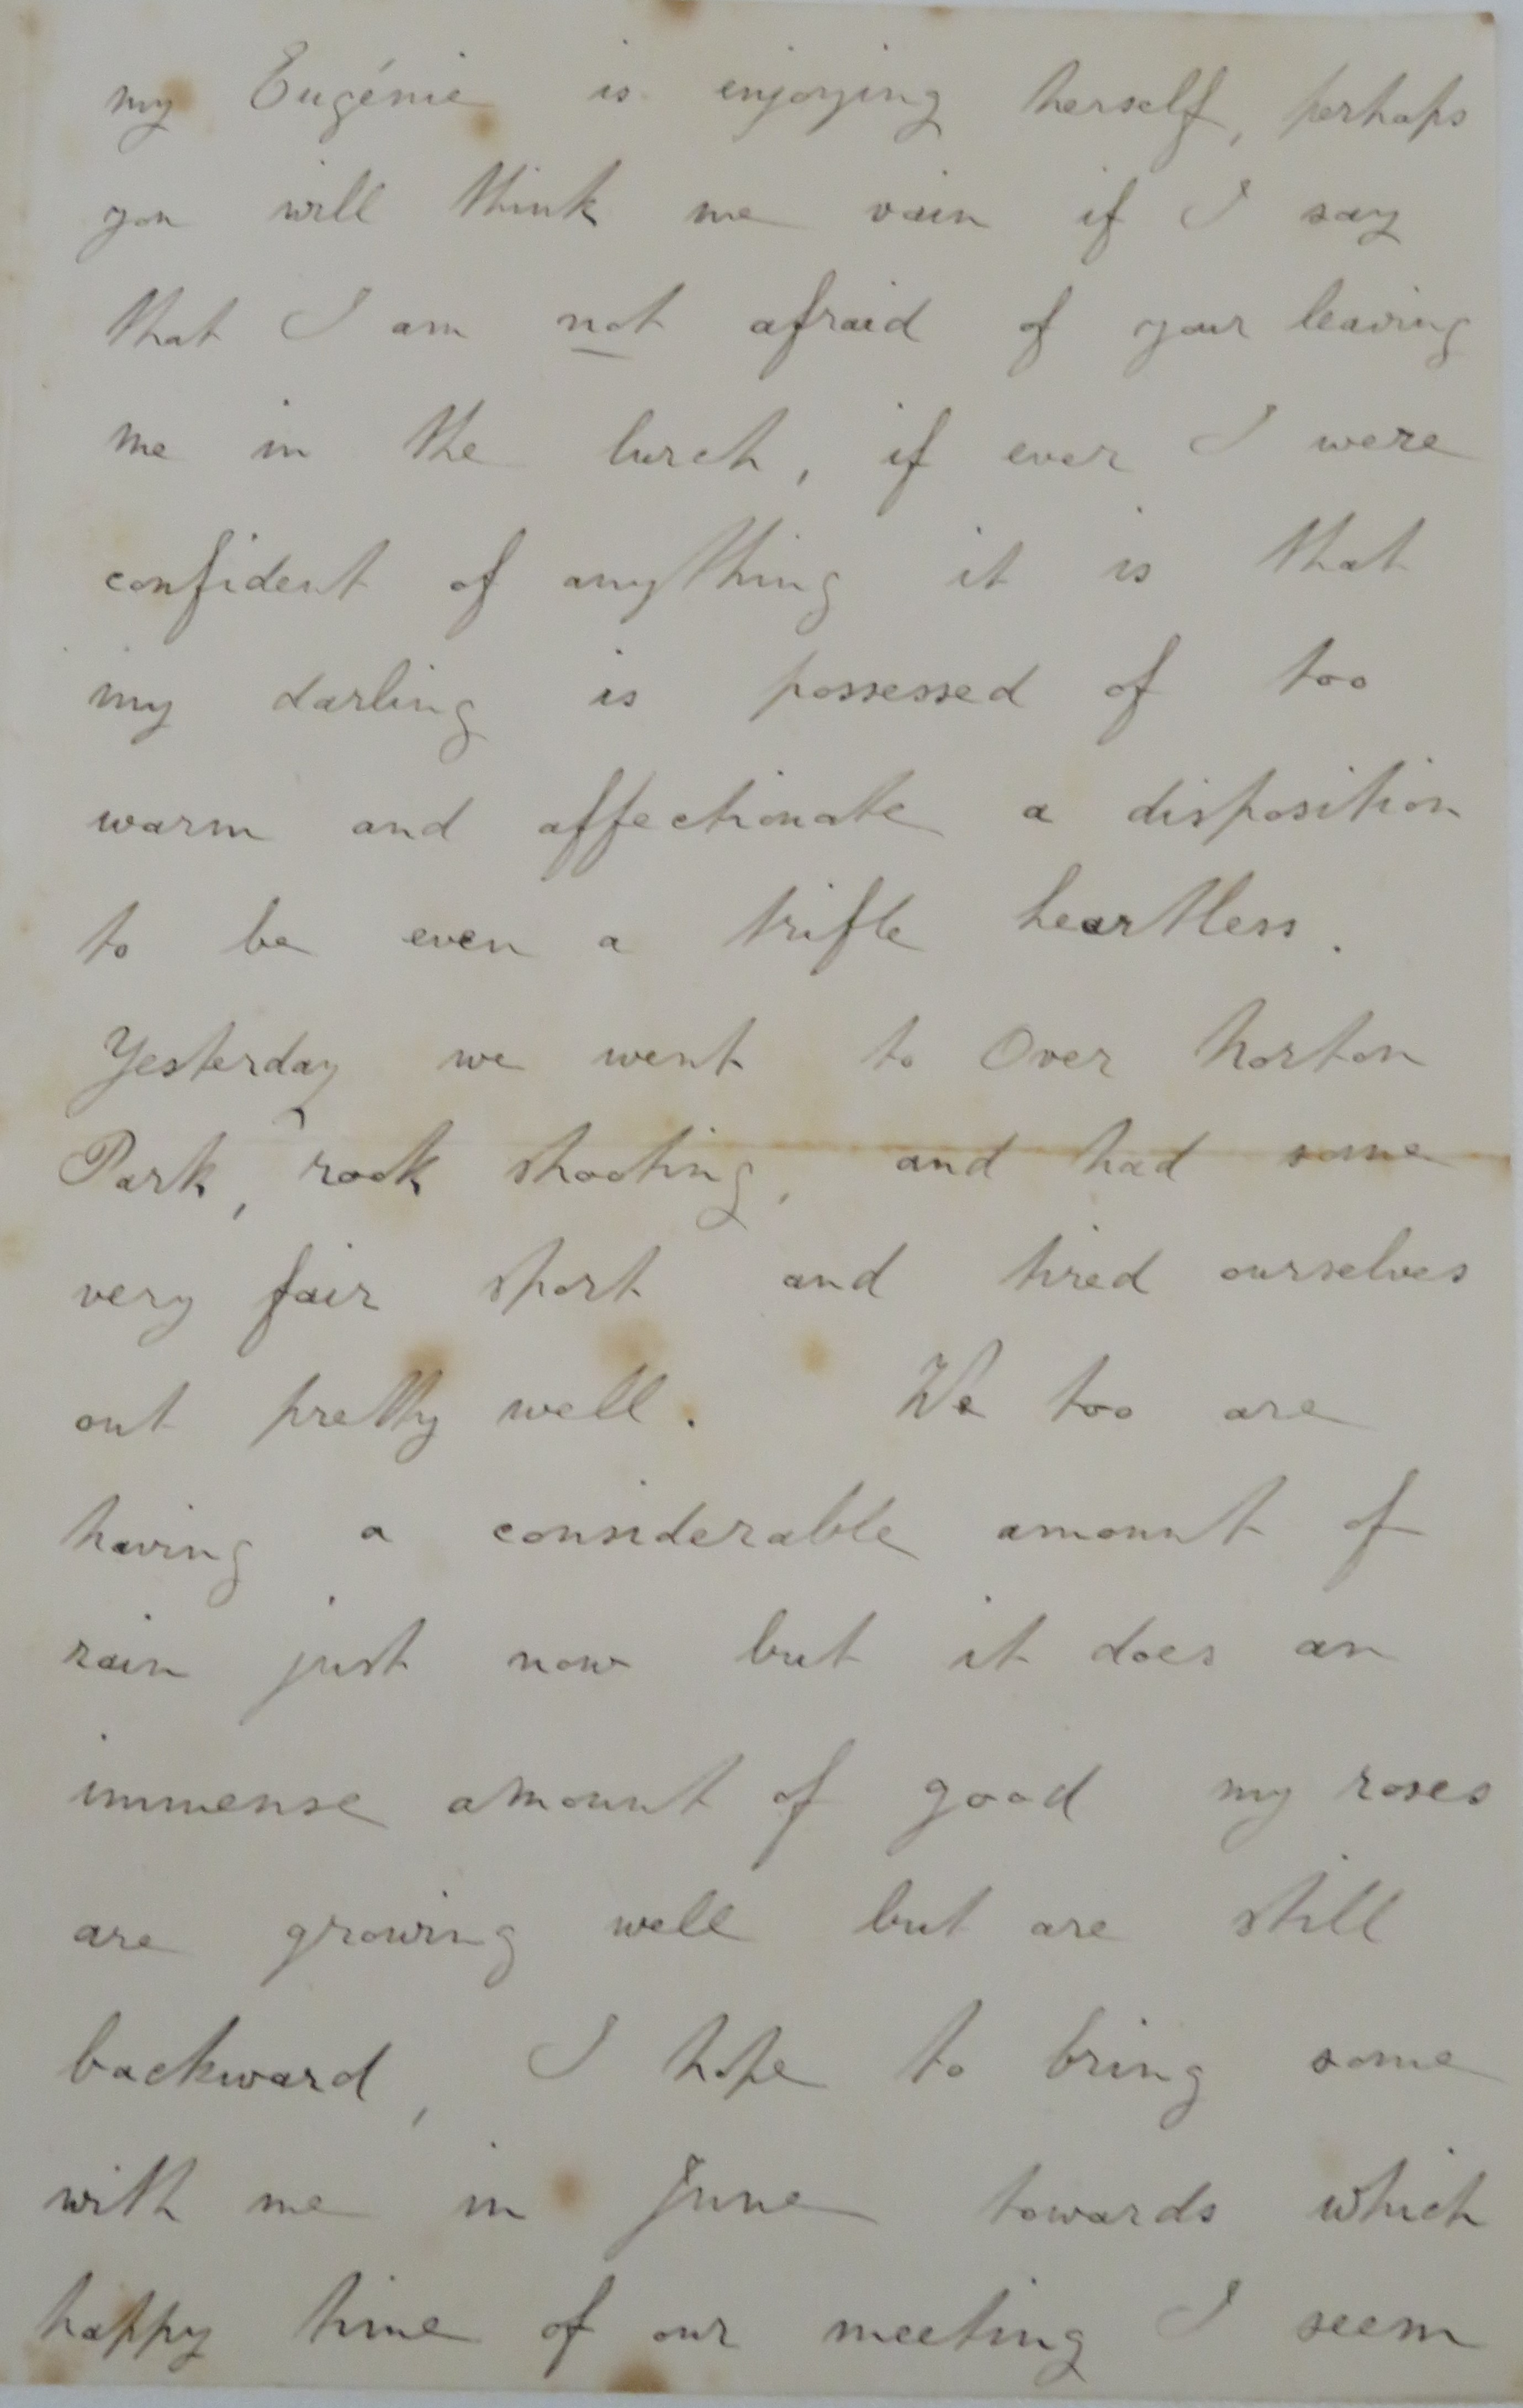 my Eugénie is enjoying herself, perhaps
you will think me vain if I say
that I am not afraid of your leaving
me in the lurch, if ever I were
confident of anything it is that
my darling is possessed of too
warm and affectionate a disposition
to be even a trifle heartless.
Yesterday we went to Over Norton
Park, rook shooting, and had some
very fair sport and tired ourselves
out pretty well. We too are
having a considerable amount of
rain just now but it does an
immense amount of good my roses
are growing well but are still
backward, I hope to bring some
with me in June towards which
happy time of our meeting I seem